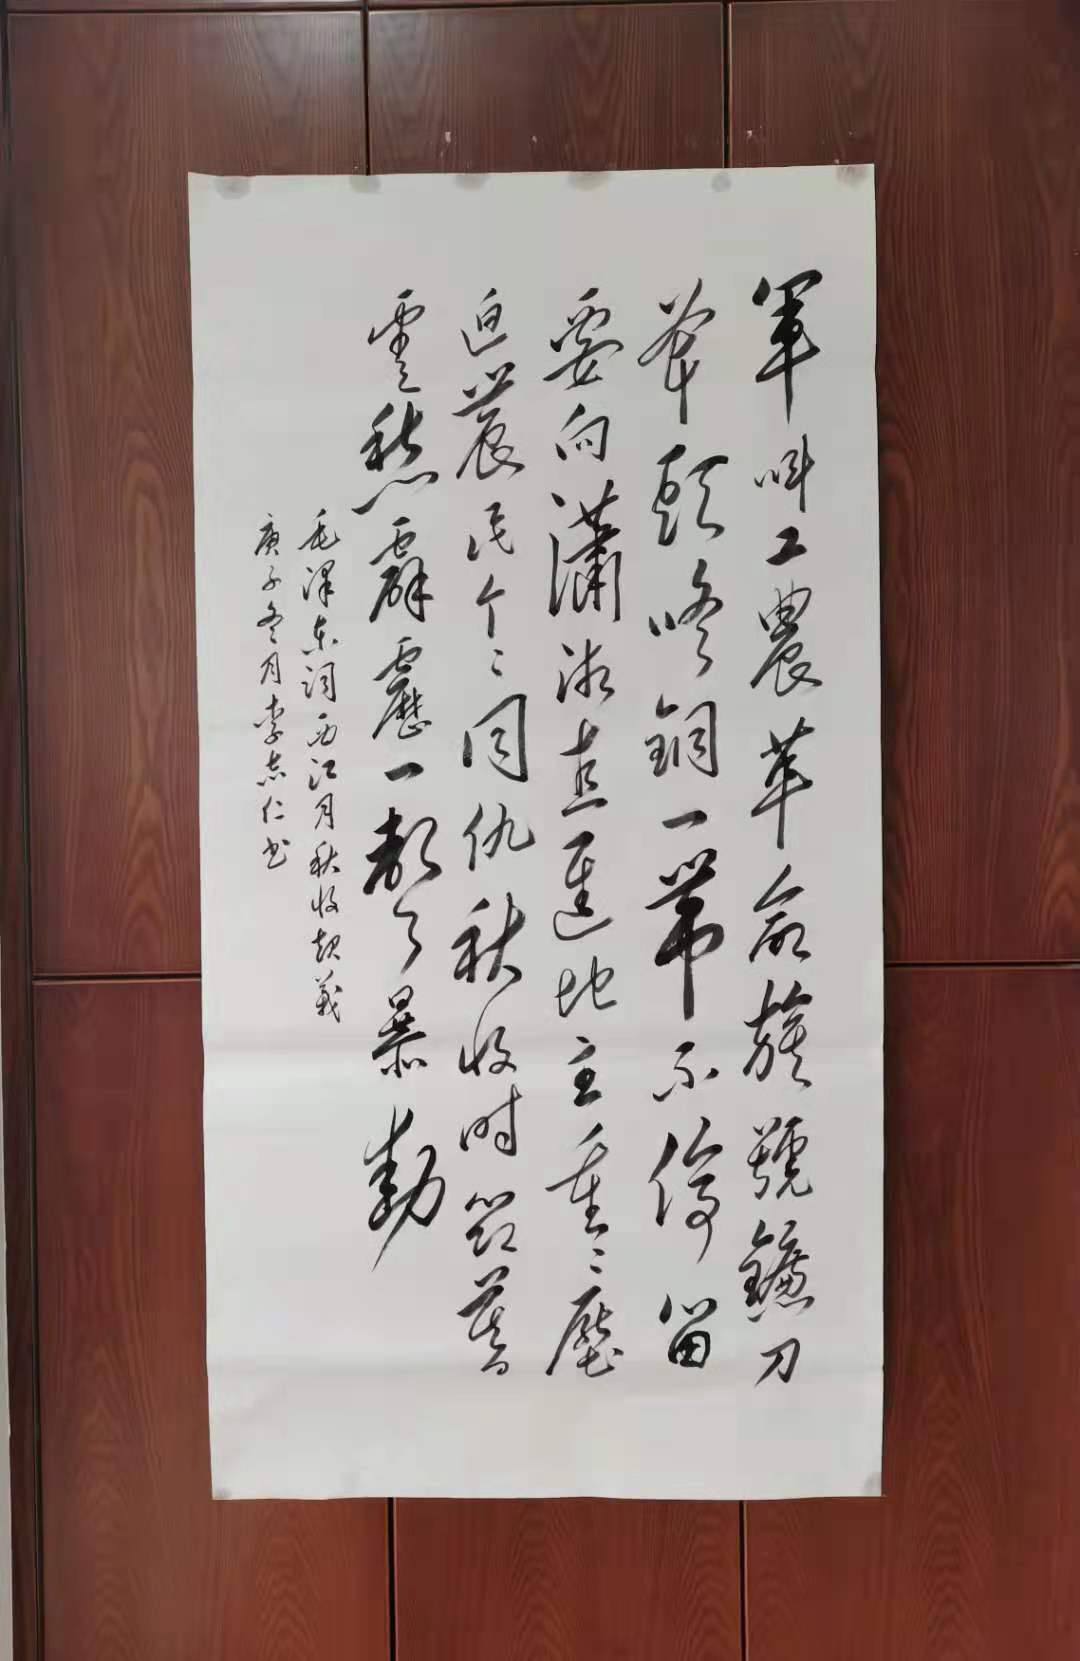 軍叫工農革命旗號鐮刀
斧頭修銅一帶不停留
要向瀟湘直進地主重〻壓
迫農民个〻同仇秋收時節暮
雲愁霹靂一聲暴動
毛澤东词西江月秋收起義
庚子冬月李志仁书